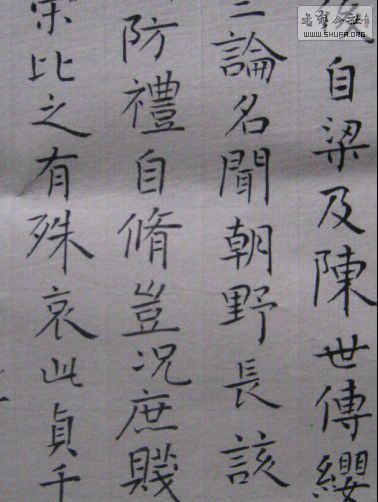 自梁及陳世傳纓
三論名聞朝野長該
防禮自脩豈況庶賤
比之有殊哀此貞千
書法公社
WWW.SHUFA.ORG